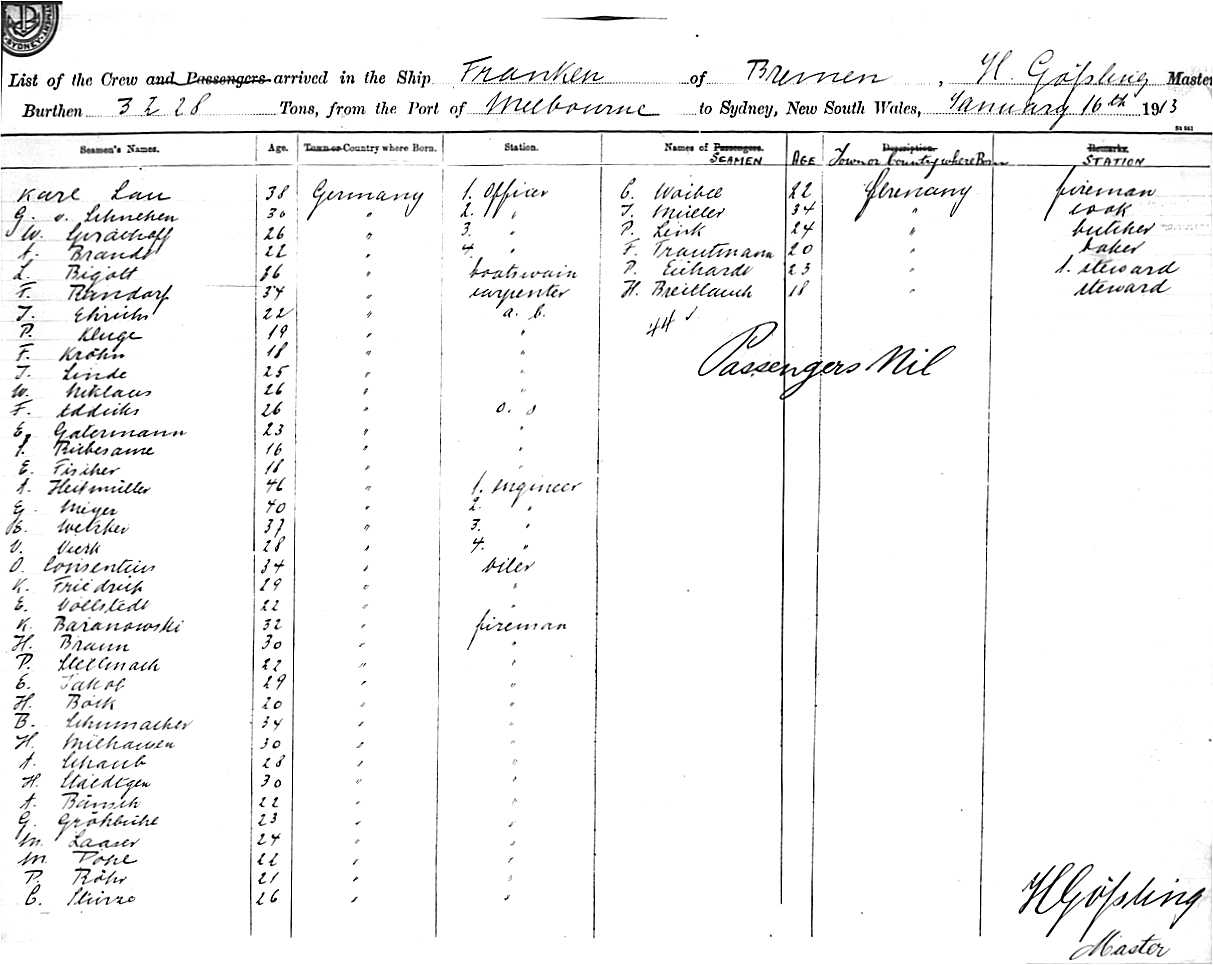 SYDNEY
List of the Crew and Passengers arrived in the Ship Franken of Bremen, H. Gößling Master
Burthen 3228 Tons, from the Port of Melbourne to Sydney, New South Wales, January 16th 1913
Seamen's Names. Age. Town or Country where Born. Station. Names of Passengers. SEAMEN AGE Description. Town or Country where Born Remarks. STATION
Karl Lau 38 Germany 1. Officer C. Waibel 22 Germany fireman
G. v. Schnehen 30 " 2. " J. Müller 34 " cook
W. 26 " 3. " P. Link 24 " butcher
A. Brandt 22 " 4. " F. Trautmann 20 " baker
L. Bigott 36 " boatswain P. Eichardt 23 " 1. steward
F. Randorf 34 " carpenter H. 18 " steward
J. Ehrichs 22 " a. b. 44
P. Kluge 19 " "
F. Kröhn 18 " " Passengers Nil
J. Linde 25 " "
W. Niklaus 26 " "
F. Eddicks 26 " o. s
E. Gatermann 23 " "
Riebesame 16 " "
E. Fischer 18 " "
A. Heitmüller 46 " 1. engineer
G. Meyer 40 " 2. "
E. Welcher 37 " 3. "
V. Vierk 28 " 4. "
O. Consentius 34 " oiler
K. Friedrich 29 " "
E. Vollstedt 22 " "
K. Baranowski 32 " fireman
H. Braun 30 " "
P. Stellmach 22 " "
E. Jakob 29 " "
H. Böck 20 " "
B. Schumacher 34 " "
H. Milhausen 30 " "
A. Schaub 28 " "
H. Staedtgen 30 " "
A. Bänsch 22 " "
G. 23 " "
M. Laaser 24 " "
M. Pope 22 " "
P. Röhr 21 " "
C. 26 " "
HGößling
Master